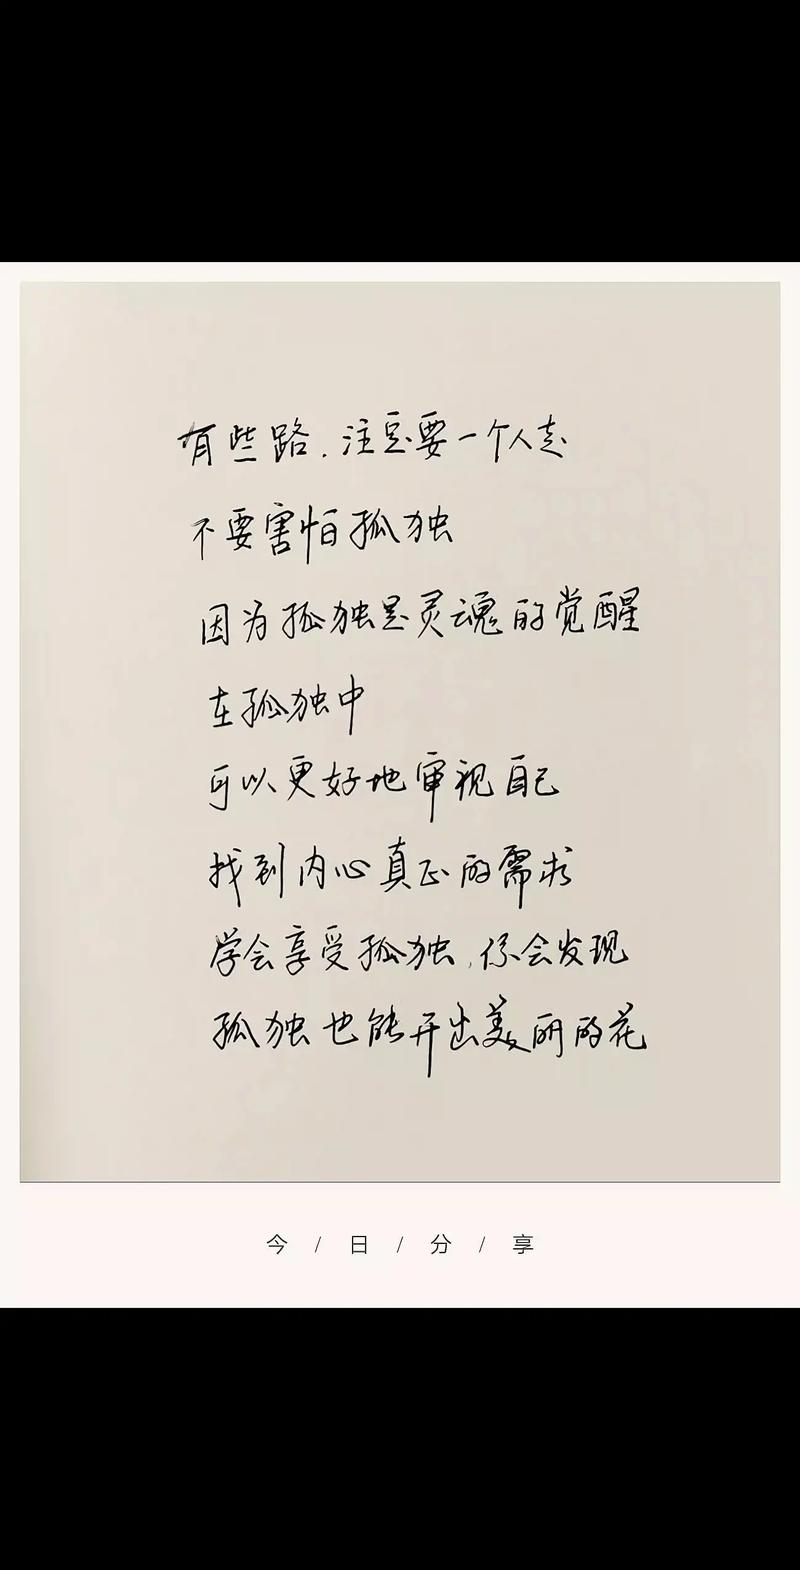 有些路，注定要一个人走
不要害怕孤独
因为孤独是灵魂的觉醒
在孤独中
可以更好地审视自己
找到内心真正的需求
学会享受孤独，你会发现
孤独也能开出美丽的花
今 / 日 / 分 / 享